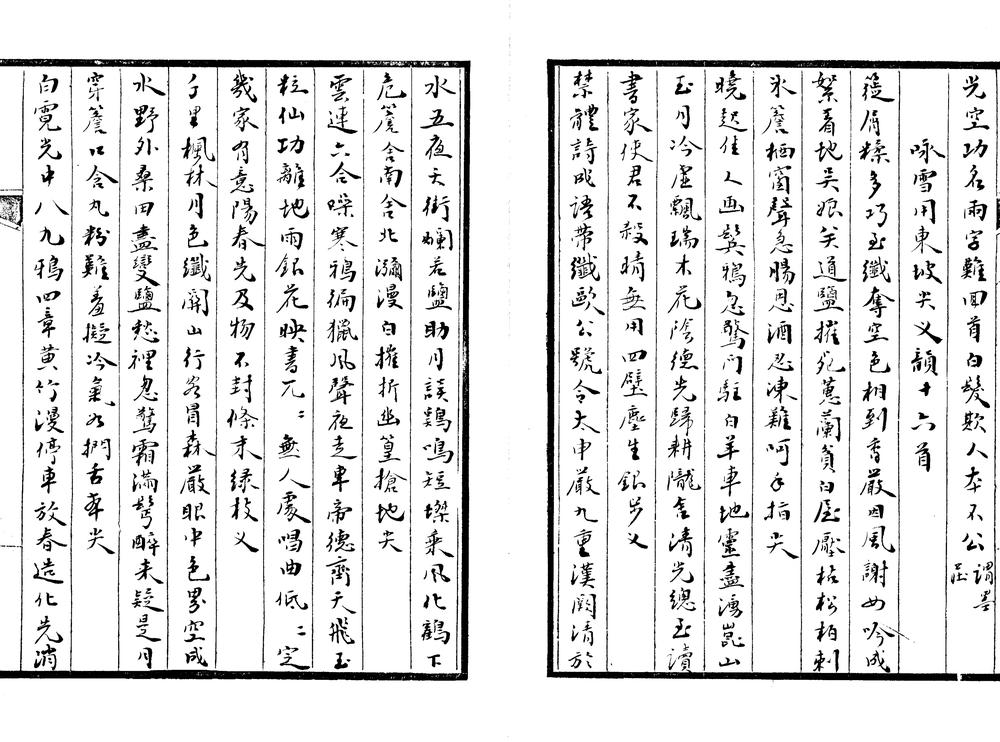 光空功名兩字難回首白髮欺人本不公謂墨莊
咏雪用東坡尖义韻十六首
篩屑糝多巧玉纖奪空色相到香嚴因風謝女吟成
絮着地吳娘笑道鹽摧宛蕙蘭貧白屋壓枯松柏刺
氷簷栖窗聲急腸思酒忍凍難呵手指尖
曉起佳人画鬓鴉忽驚門駐白羊車地靈盡湧崑山
玉月冷虛飄瑞木花陰德光歸耕隴舍清光總玉讀
書家使君不殺晴無用四壁塵生銀步义
禁體詩成語帶纖歐公號令太申嚴九重漢闕清於
水五夜天街爛若鹽助月談鷄鳴短墚乘風化鶴下
危簷舍南舍北瀰漫白摧折幽篁搶地尖
雲連六合噪寒鴉徧獵風聲夜走車帝德齊天飛玉
粒仙功離地雨銀花映書兀〻無人處唱曲低〻定
幾家有意陽春先及物不封條末綠枝义
千里楓林月色纖關山行客冒森嚴眼中色界空成
水野外桑田盡變鹽愁裡忽驚霜滿鬓醉來疑是月
穿簷口含丸粉難羞擬冷氣如捫舌本尖
白霓光中八九鴉四章黄竹漫停車放春造化先消